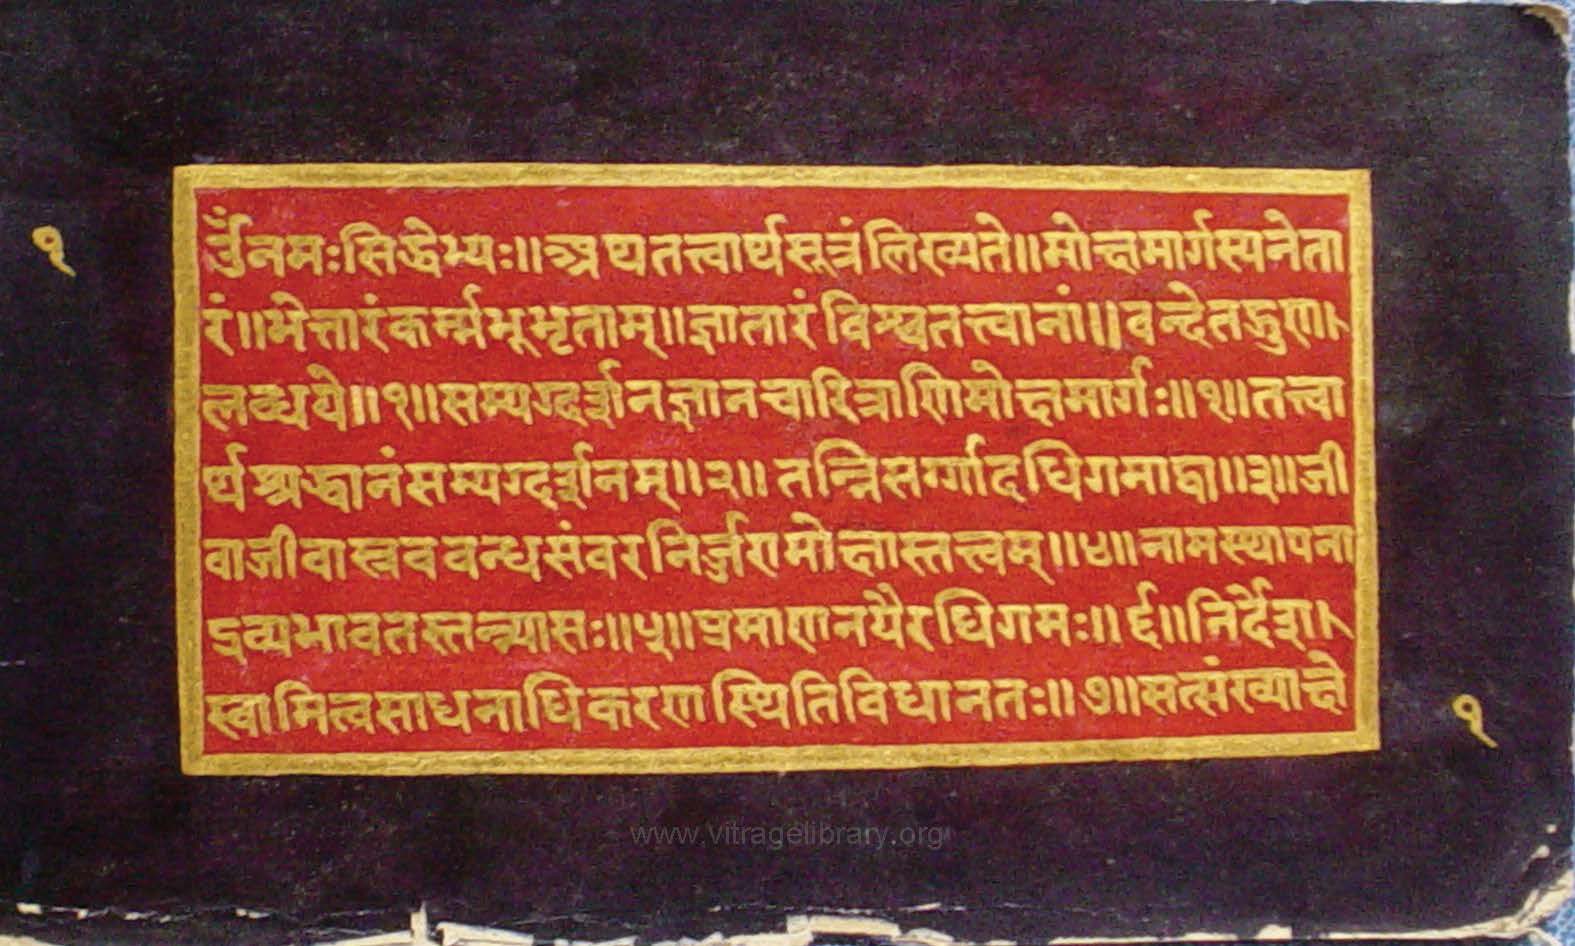 १
ॐ नमः सिद्धेभ्यः॥ अथ तत्त्वार्थसूत्रं लिख्यते॥ मोक्षमार्गस्य नेता
रं॥ भेत्तारं कर्म्मभूभृताम्॥ ज्ञातारं विश्वतत्त्वानां॥ वन्दे तद्गुण।
लब्धये॥१॥ सम्यग्दर्शनज्ञानचारित्राणि मोक्षमार्गः॥१॥ तत्त्वा
र्थश्रद्धानं सम्यग्दर्शनम्॥२॥ तन्निसर्ग्गादधिगमाद्वा॥३॥ जी
वाजीवास्रववबन्धसंवरनिर्ज्जरामोक्षास्तत्त्वम्॥४॥ नामस्थापना
द्रव्यभावतस्तन्न्यासः॥५॥ प्रमाणनयैरधिगमः॥६॥ निर्देश।
स्वामित्वसाधनाधिकरणस्थितिविधानतः॥७॥ सत्संख्याक्षे
१
www.vitragelibrary.org